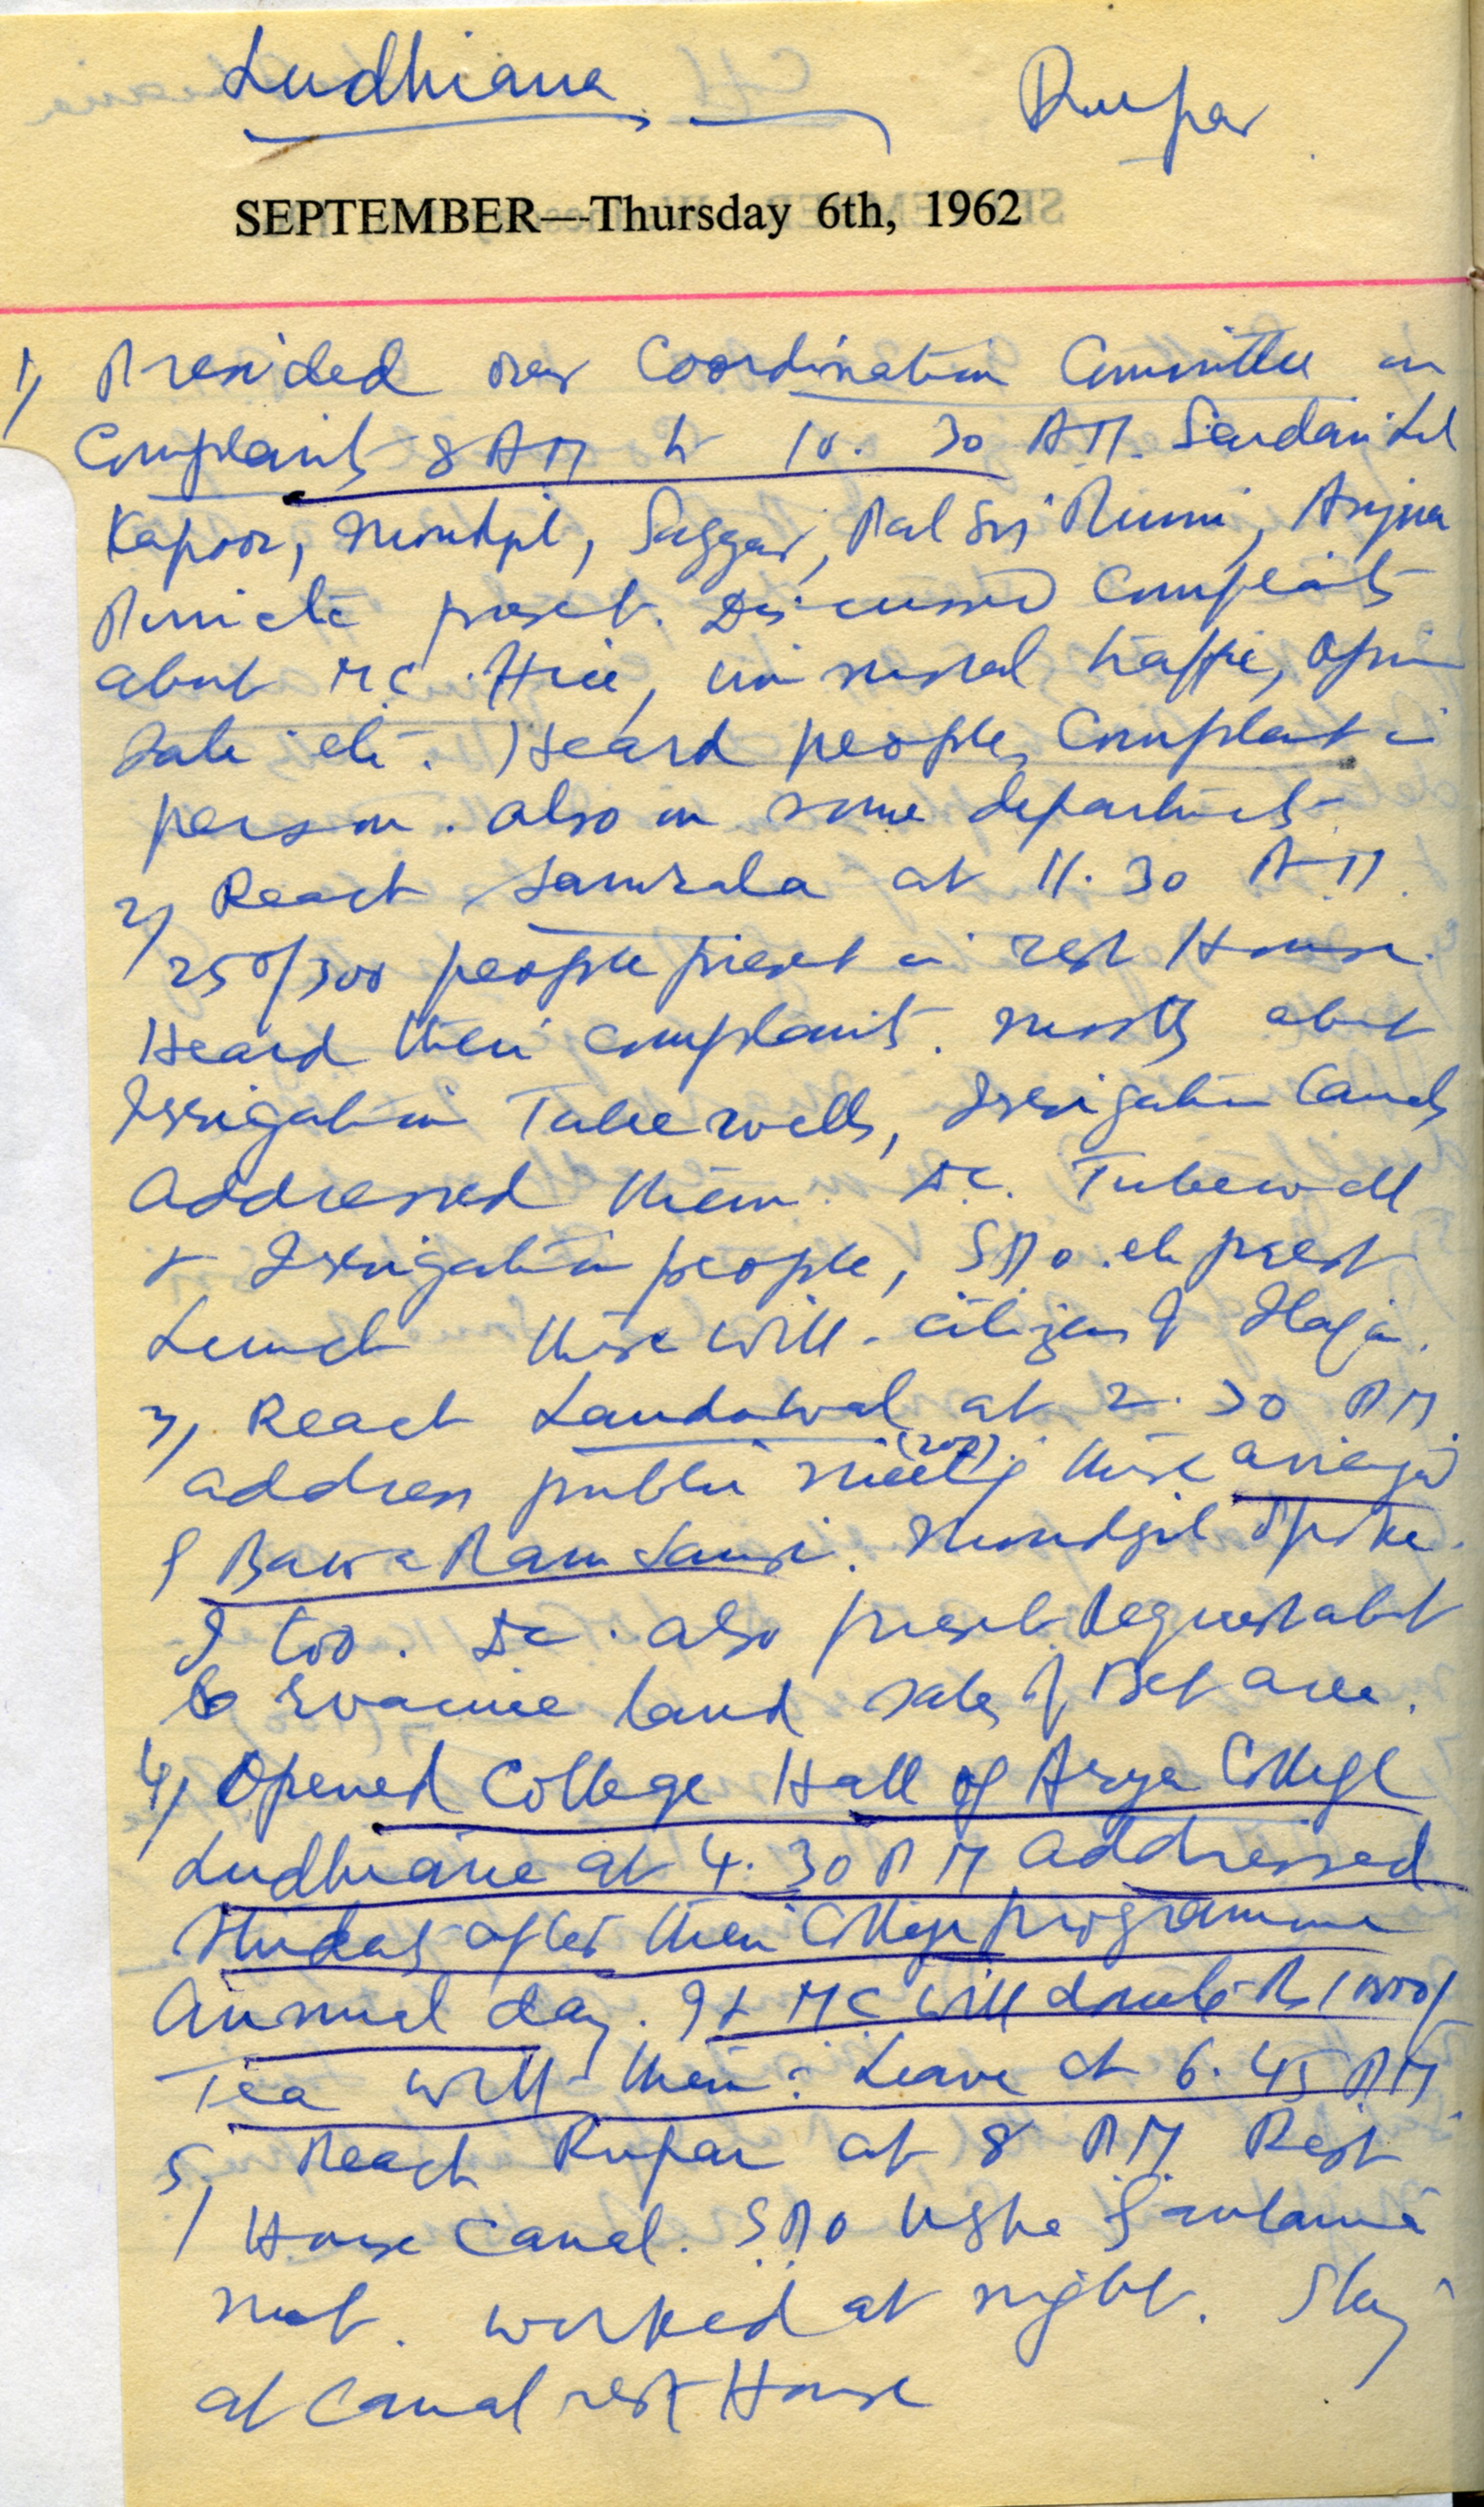 Ludhiana Rupar
SEPTEMBER—Thursday 6th, 1962
1) Presided over Coordination Committee on
Complaints 8 AM to 10.30 AM. Sardari Lal
Kapoor, Mondgil, Saggar, Pal Sri
present. Discussed Complaints
about M.C. traffic,
Sale etc. Heard people, Complaint in
person. also on some departments.
2) Reach Samrala at 11.30 AM.
250/300 people present in rest House.
Heard their complaints. mostly about
Irrigation Tubewells, Irrigation Canals
Addressed them. D.C. Tubewell
& Irrigation people, SDO. etc present
Lunch there with citizens of Ilaqa.
3) Reach Ladowal at 2.30 PM
address public meeting (200) there arranged
by Bawa Ram Mondgil spoke.
I too. DC. also present. Request about
Evacuee land sales of Bet area.
4) Opened College Hall of Arya College
Ludhiana at 4.30 PM addressed
Students after their College programme
Annual day. MC will donate Rs
Tea with them. Leave at 6.45 PM.
5) Reach Rupar at 8 PM Rest
House Canal. SDO
met. worked at night. Stay
at Canal rest House